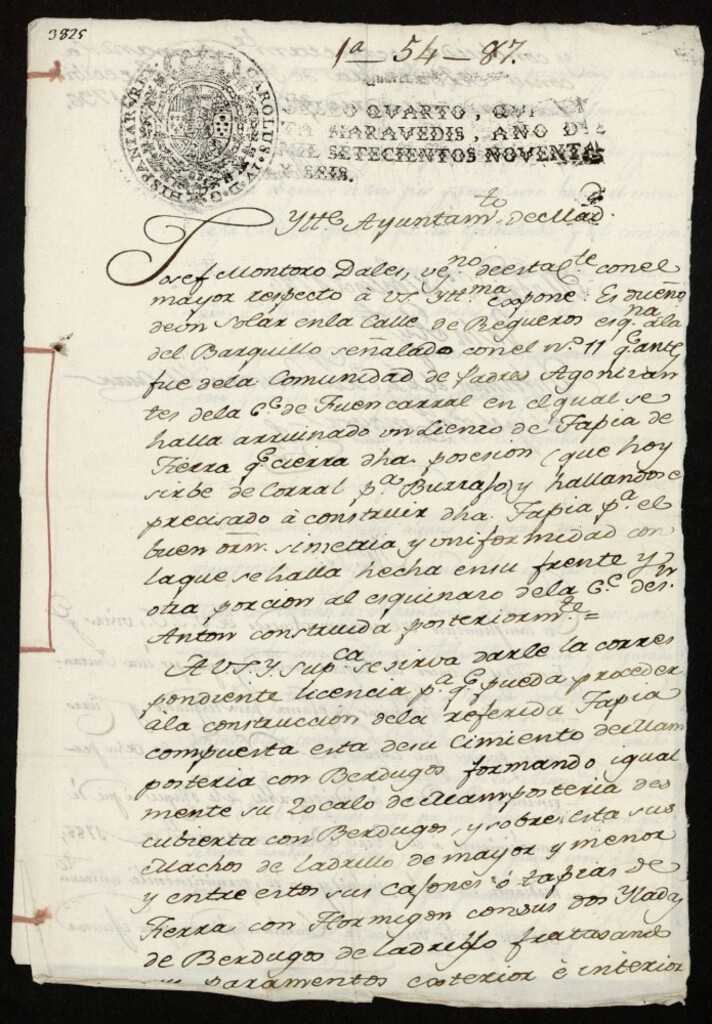 3825
1ª - 54 - 87.
HISPANIAR. REX CAROLUS. IV. D. G.
O QVARTO, QV
TA MARAVEDIS, AÑO DE
MIL SETECIENTOS NOVENTA
Y SEIS.
Ytt.e Ayuntam.to de Mad.d
Josef Montoro Dales, ve.no de esta V.e con el
mayor respecto à VS Ytt.ma expone: Es dueño
de un Solar en la Calle de Regueros esq.na ala
del Barquillo señalado con el n.º 11 q.e antes
fue dela Comunidad de Padres Agonizan
tes dela C.e de Fuencarral en el qual se
halla arruinado un Lienzo de Tapia de
Tierra q.e cierra dha. posesion (que hoy
sirbe de Corral p.a Burras) y hallandose
precisado à construir dha. Tapia p.a el
buen orn. simetria y uniformidad con
la que se halla hecha en su frente y
otra porcion al esquinazo dela C.e de S.n
Anton construida posteriorm.te =
A VS Y. sup.ca se sirva darle la corres
pondiente licencia p.a q.e pueda proceder
ala construccion dela referida Tapia
compuesta esta de su Cimiento de Mam
posteria con Berdugos formando igual
mente su Zocalo de Mamposteria des
cubierta con Berdugos, y sobre esta sus
Machos de Ladrillo de mayor y menor
y entre estos sus Cajones ó tapias de
Tierra con Hormigon con sus dos Yladas
de Berdugos de ladrillo fratasando
paramentos exterior è interior